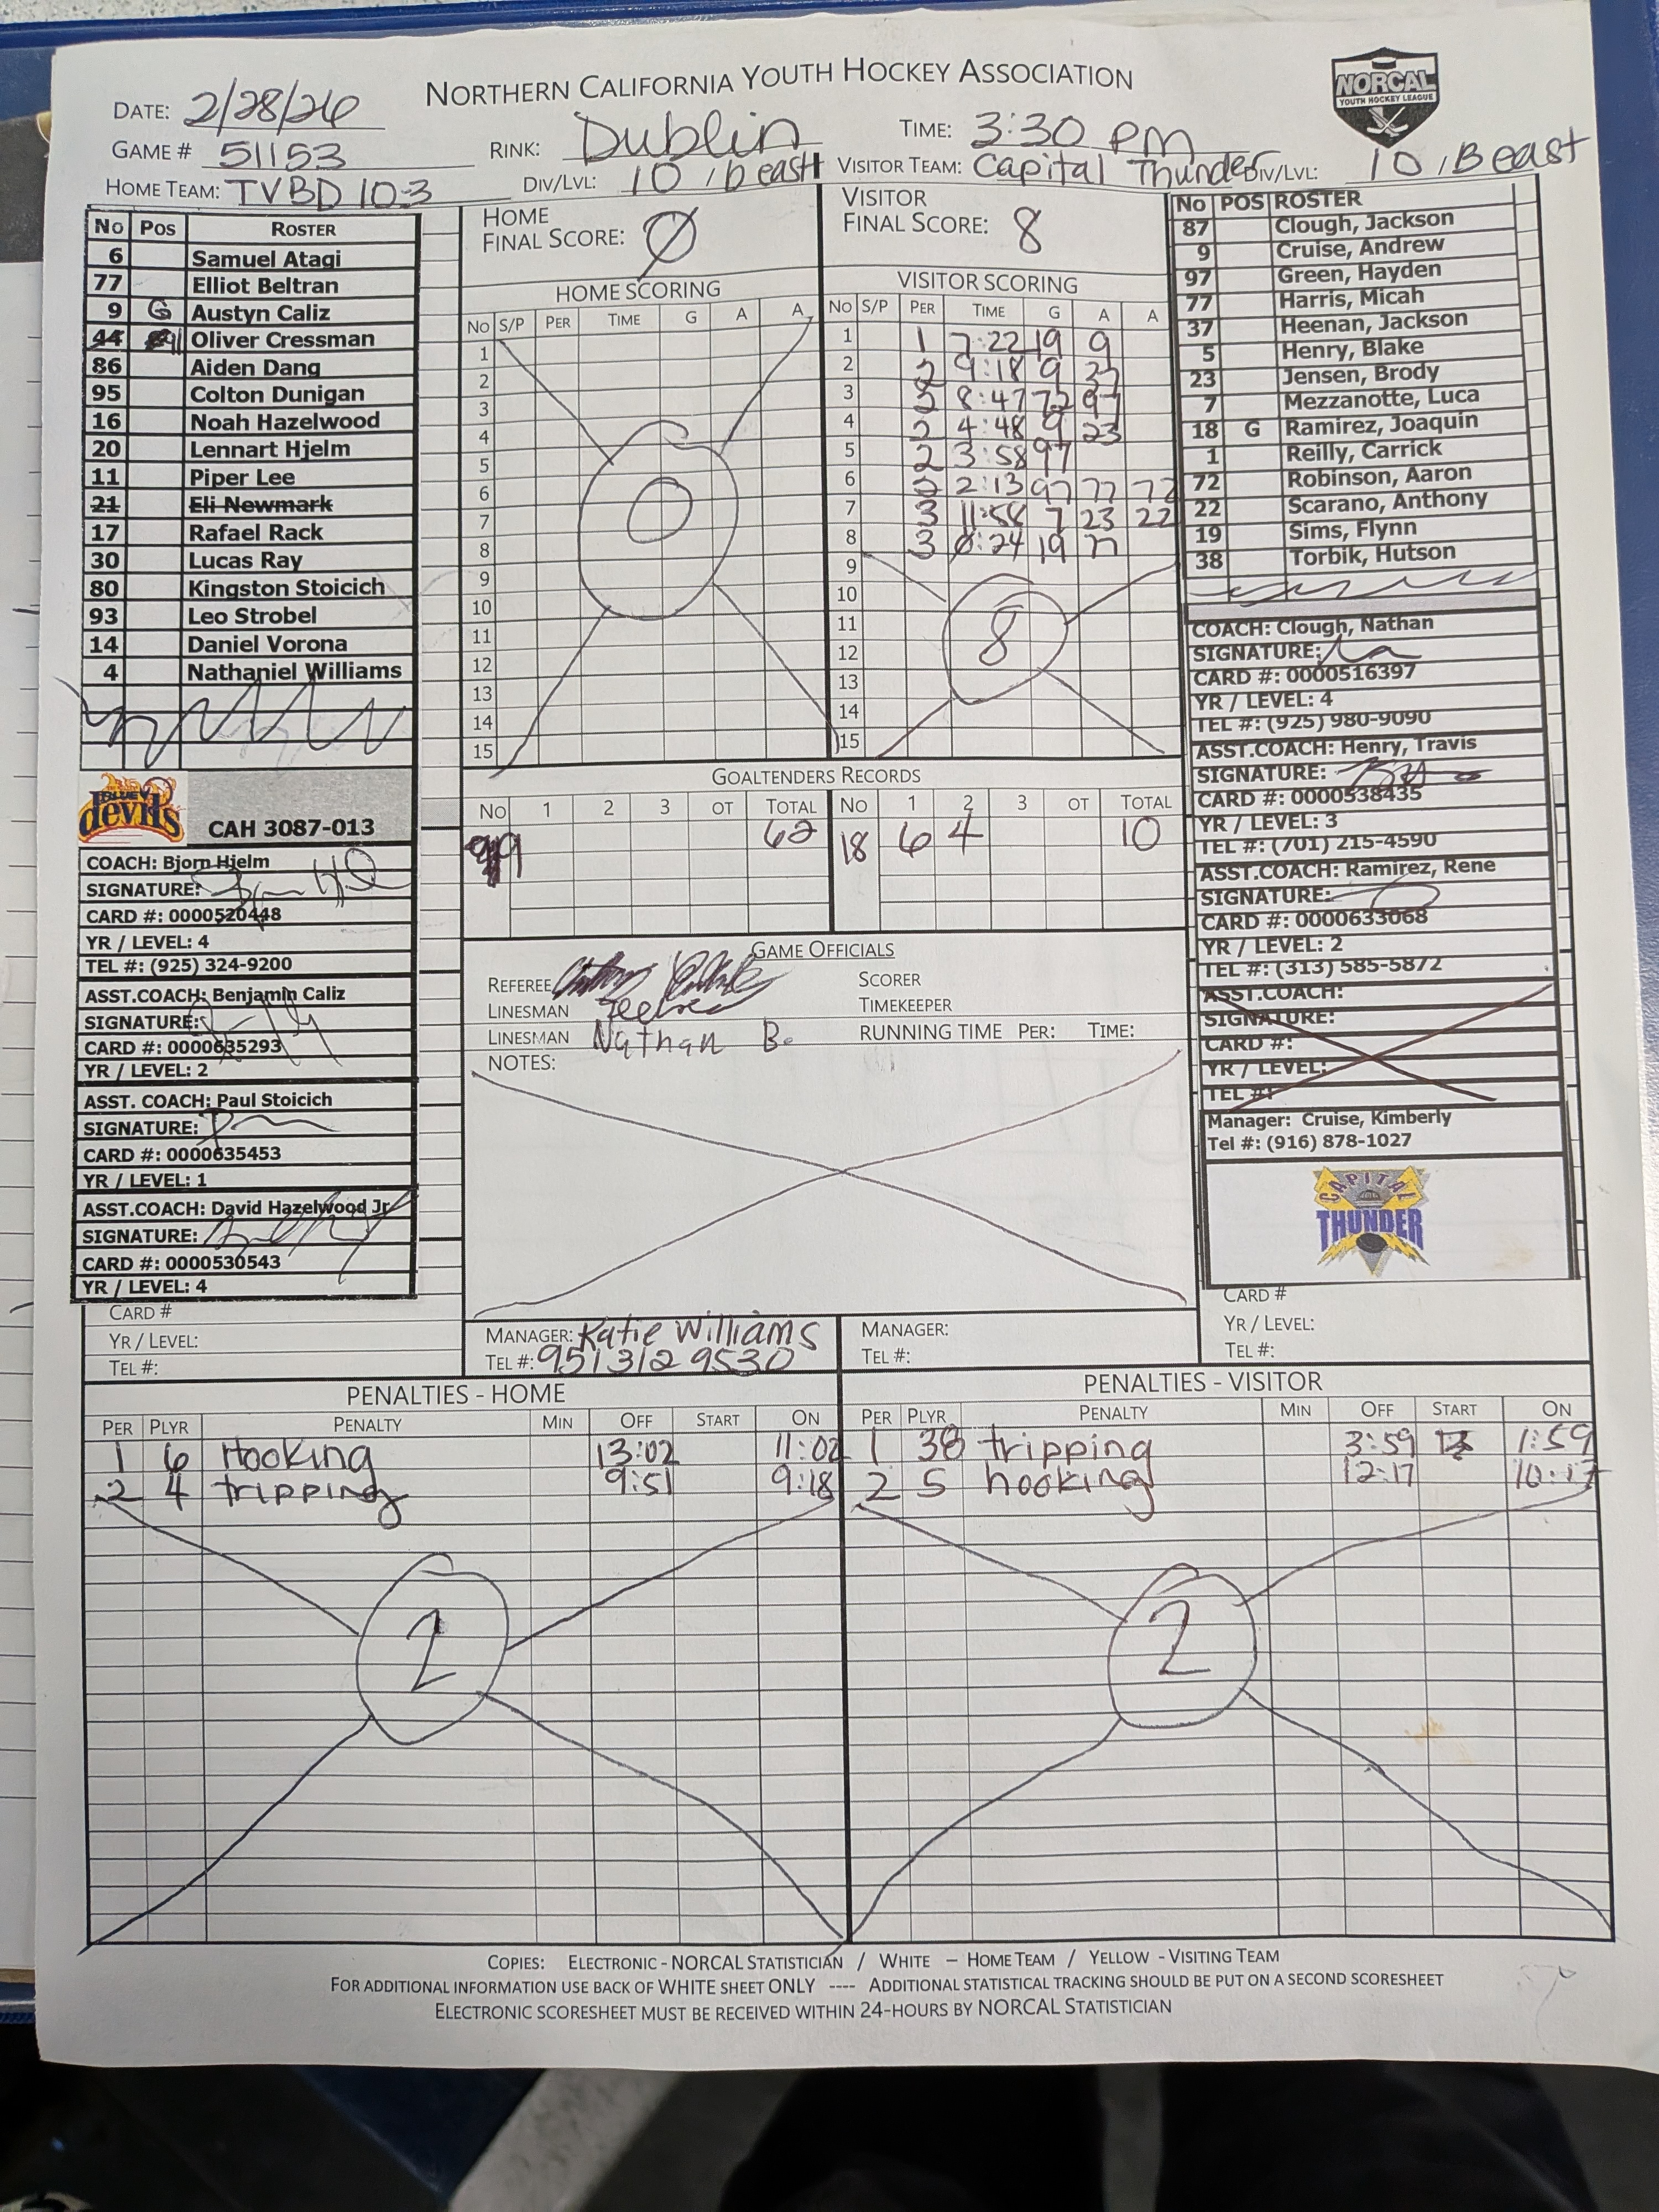 NORTHERN CALIFORNIA YOUTH HOCKEY ASSOCIATION
NORCAL
YOUTH HOCKEY LEAGUE
DATE: 2/28/26
GAME # 51153
RINK: Dublin
TIME: 3:30 PM
HOME TEAM: TVBD 10-3
DIV/LVL: 10 / b east
VISITOR TEAM: Capital Thunder
DIV/LVL: 10 / B east
No Pos ROSTER
6 Samuel Atagi
77 Elliot Beltran
9 G Austyn Caliz
44 Oliver Cressman
86 Aiden Dang
95 Colton Dunigan
16 Noah Hazelwood
20 Lennart Hjelm
11 Piper Lee
21 Eli Newmark
17 Rafael Rack
30 Lucas Ray
80 Kingston Stoicich
93 Leo Strobel
14 Daniel Vorona
4 Nathaniel Williams
BLUE devils
CAH 3087-013
COACH: Bjorn Hjelm
SIGNATURE:
CARD #: 0000520448
YR / LEVEL: 4
TEL #: (925) 324-9200
ASST.COACH: Benjamin Caliz
SIGNATURE:
CARD #: 0000635293
YR / LEVEL: 2
ASST. COACH: Paul Stoicich
SIGNATURE:
CARD #: 0000635453
YR / LEVEL: 1
ASST.COACH: David Hazelwood Jr
SIGNATURE:
CARD #: 0000530543
YR / LEVEL: 4
CARD #
YR / LEVEL:
TEL #:
HOME
FINAL SCORE: 0
HOME SCORING
No S/P PER TIME G A A
1
2
3
4
5
6
7
8
9
10
11
12
13
14
15
0
VISITOR
FINAL SCORE: 8
VISITOR SCORING
No S/P PER TIME G A A
1 1 7:22 19 9
2 2 9:18 9 37
3 2 8:47 72 97
4 2 4:48 9 23
5 2 3:58 97
6 2 2:13 97 77 72
7 3 11:58 7 23 22
8 3 0:24 19 77
9
10
11
12
13
14
15
8
GOALTENDERS RECORDS
No 1 2 3 OT TOTAL
62
No 1 2 3 OT TOTAL
18 6 4 10
GAME OFFICIALS
REFEREE
LINESMAN
LINESMAN Nathan B.
SCORER
TIMEKEEPER
RUNNING TIME PER: TIME:
NOTES:
MANAGER: Katie Williams
TEL #: 951 312 9530
MANAGER:
TEL #:
No POS ROSTER
87 Clough, Jackson
9 Cruise, Andrew
97 Green, Hayden
77 Harris, Micah
37 Heenan, Jackson
5 Henry, Blake
23 Jensen, Brody
7 Mezzanotte, Luca
18 G Ramirez, Joaquin
1 Reilly, Carrick
72 Robinson, Aaron
22 Scarano, Anthony
19 Sims, Flynn
38 Torbik, Hutson
COACH: Clough, Nathan
SIGNATURE:
CARD #: 0000516397
YR / LEVEL: 4
TEL #: (925) 980-9090
ASST.COACH: Henry, Travis
SIGNATURE:
CARD #: 0000538435
YR / LEVEL: 3
TEL #: (701) 215-4590
ASST.COACH: Ramirez, Rene
SIGNATURE:
CARD #: 0000633068
YR / LEVEL: 2
TEL #: (313) 585-5872
ASST.COACH:
SIGNATURE:
CARD #:
YR / LEVEL:
TEL #:
Manager: Cruise, Kimberly
Tel #: (916) 878-1027
CAPITAL
THUNDER
CARD #
YR / LEVEL:
TEL #:
PENALTIES - HOME
PER PLYR PENALTY MIN OFF START ON
1 6 Hooking 13:02 11:02
2 4 tripping 9:51 9:18
2
PENALTIES - VISITOR
PER PLYR PENALTY MIN OFF START ON
1 38 tripping 3:59 1:59
2 5 hooking 12:17 10:17
2
COPIES: ELECTRONIC - NORCAL STATISTICIAN / WHITE – HOME TEAM / YELLOW - VISITING TEAM
FOR ADDITIONAL INFORMATION USE BACK OF WHITE SHEET ONLY ---- ADDITIONAL STATISTICAL TRACKING SHOULD BE PUT ON A SECOND SCORESHEET
ELECTRONIC SCORESHEET MUST BE RECEIVED WITHIN 24-HOURS BY NORCAL STATISTICIAN